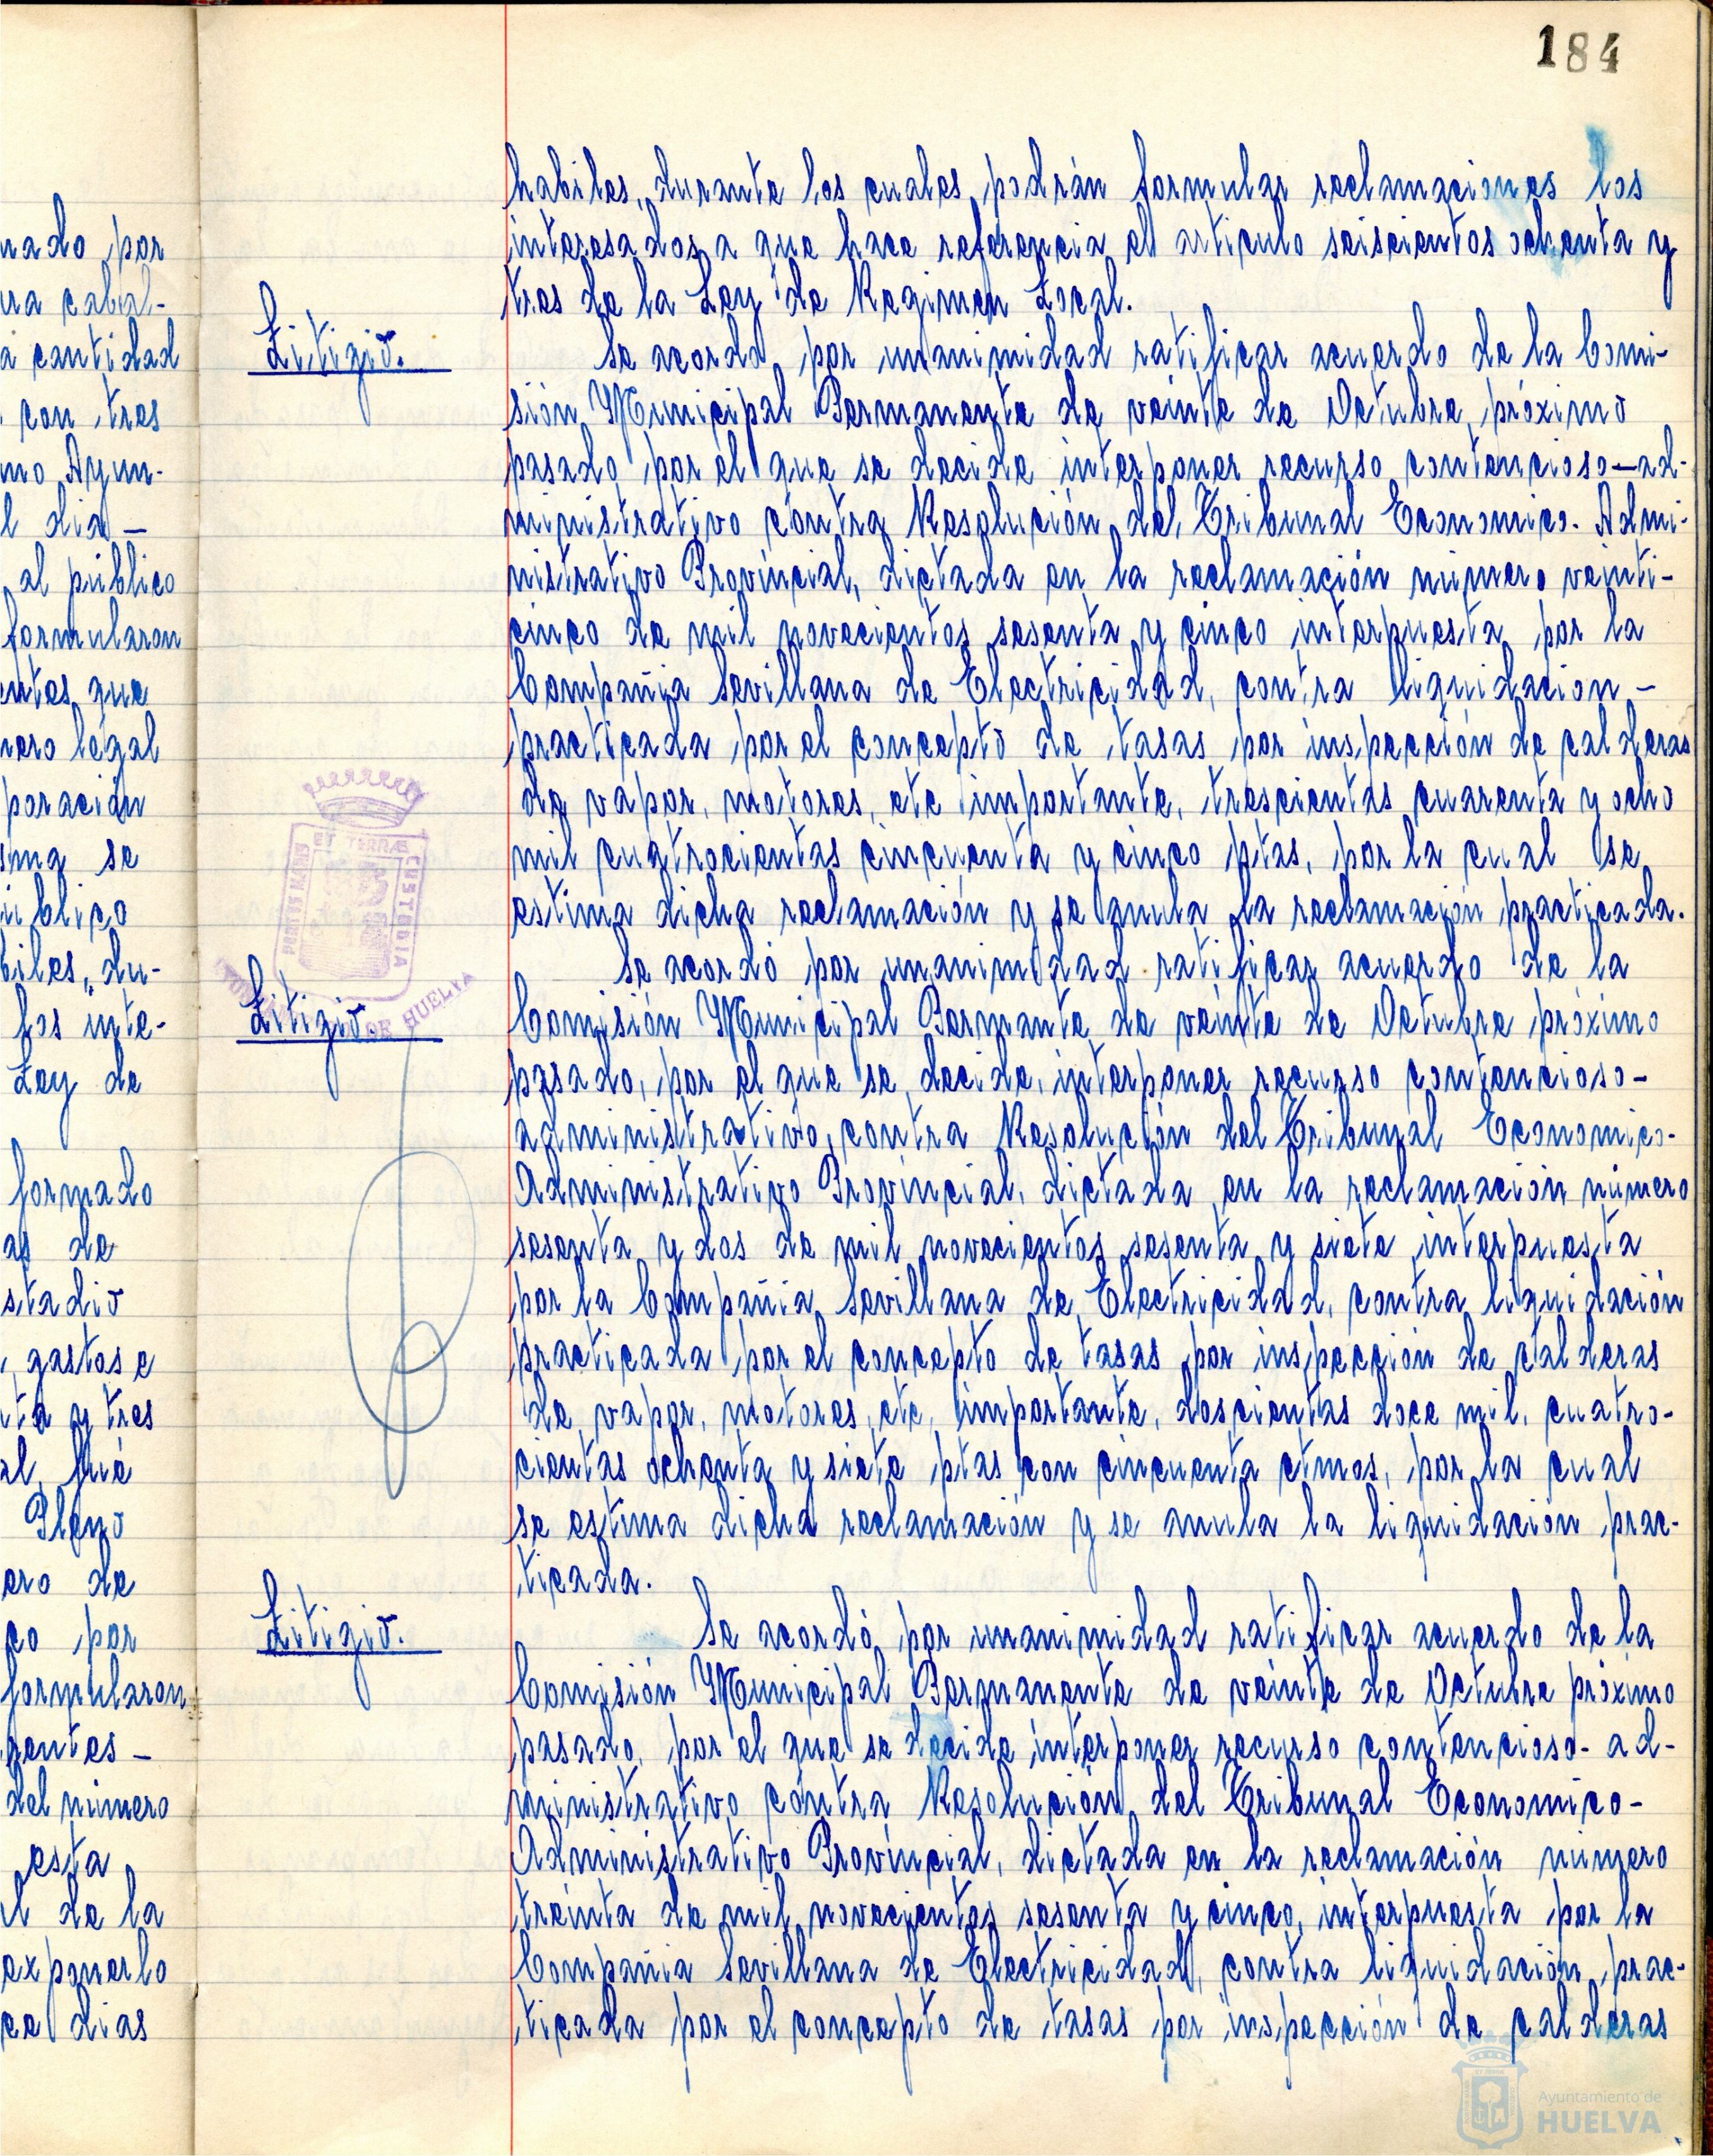 184
habiles, durante los cuales podrán formular reclamaciones los
interesados a que hace referencia el articulo seiscientos ochenta y
tres de la Ley de Regimen Local.
Litigio.
Se acordó por unanimidad ratificar acuerdo de la Comi-
sión Municipal Permanente de veinte de Octubre próximo
pasado por el que se decide interponer recurso contencioso-ad-
ministrativo contra Resolución del Tribunal Economico-Admi-
nistrativo Provincial, dictada en la reclamación número veinti-
cinco de mil novecientos sesenta y cinco interpuesta por la
Compañia Sevillana de Electricidad, contra liquidación -
practicada por el concepto de tasas por inspección de calderas
de vapor, motores, etc importante, trescientas cuarenta y ocho
mil cuatrocientas cincuenta y cinco ptas, por la cual se
estima dicha reclamación y se anula la reclamación practicada.
Litigio
Se acordó por unanimidad ratificar acuerdo de la
Comisión Municipal Permante de veinte de Octubre próximo
pasado, por el que se decide, interponer recurso contencioso-
administrativo, contra Resolución del Tribunal Economico-
Administrativo Provincial, dictada en la reclamación número
sesenta y dos de mil novecientos sesenta y siete interpuesta
por la Compañia Sevillana de Electricidad, contra liquidación
practicada por el concepto de tasas por inspección de calderas
de vapor, motores, etc, importante, doscientas doce mil, cuatro-
cientas ochenta y siete ptas con cincuenta ctmos, por la cual
se estima dicha reclamación y se anula la liquidación prac-
ticada.
Litigio.
Se acordó por unanimidad ratificar acuerdo de la
Comisión Municipal Permanente de veinte de Octubre próximo
pasado, por el que se decide interponer recurso contencioso-ad-
ministrativo contra Resolución del Tribunal Economico-
Administrativo Provincial, dictada en la reclamación número
treinta de mil novecientos sesenta y cinco, interpuesta por la
Compañia Sevillana de Electricidad, contra liquidación prac-
ticada por el concepto de tasas por inspección de calderas
PORTUS MARIS ET TERRAE CUSTODIA
DE HUELVA
por
cantidad
con tres
l dia -
al público
formularon
que
legal
se
du-
los inte-
Ley de
formado
de
gastos e
y tres
fué
Pleno
de
por
formularon
del número
esta
de la
exponerlo
dias
Ayuntamiento de
HUELVA